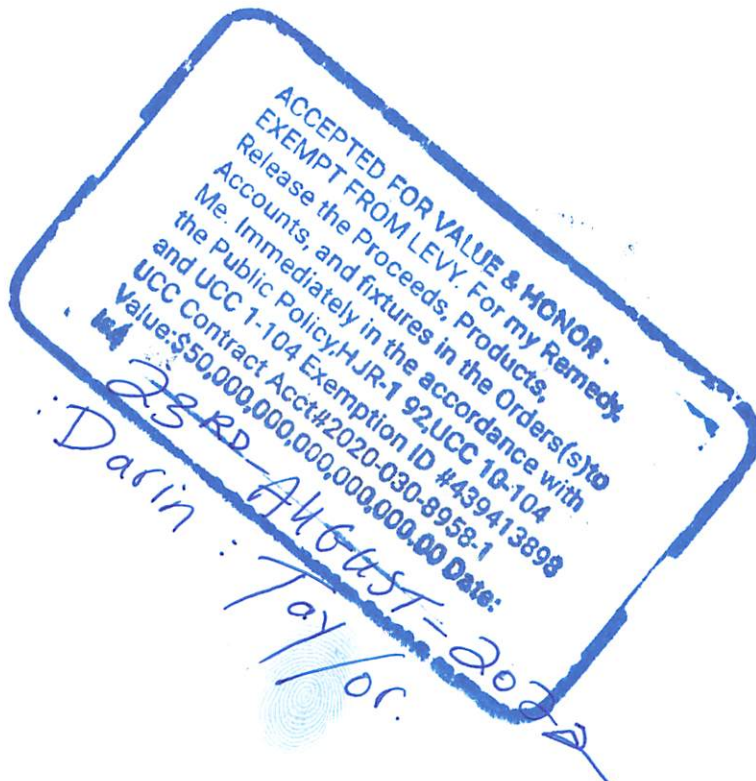 ACCEPTED FOR VALUE & HONOR -
EXEMPT FROM LEVY. For my Remedy,
Release the Proceeds, Products,
Accounts, and fixtures in the Orders(s)to
Me. Immediately in the accordance with
the Public Policy,HJR-1 92,UCC 10-104
and UCC 1-104 Exemption ID #439413898
UCC Contract Acct#2020-030-8958-1
Value:$50,000,000,000,000,000.00 Date:
23RD-AUGUST-
:Darin :Taylor.